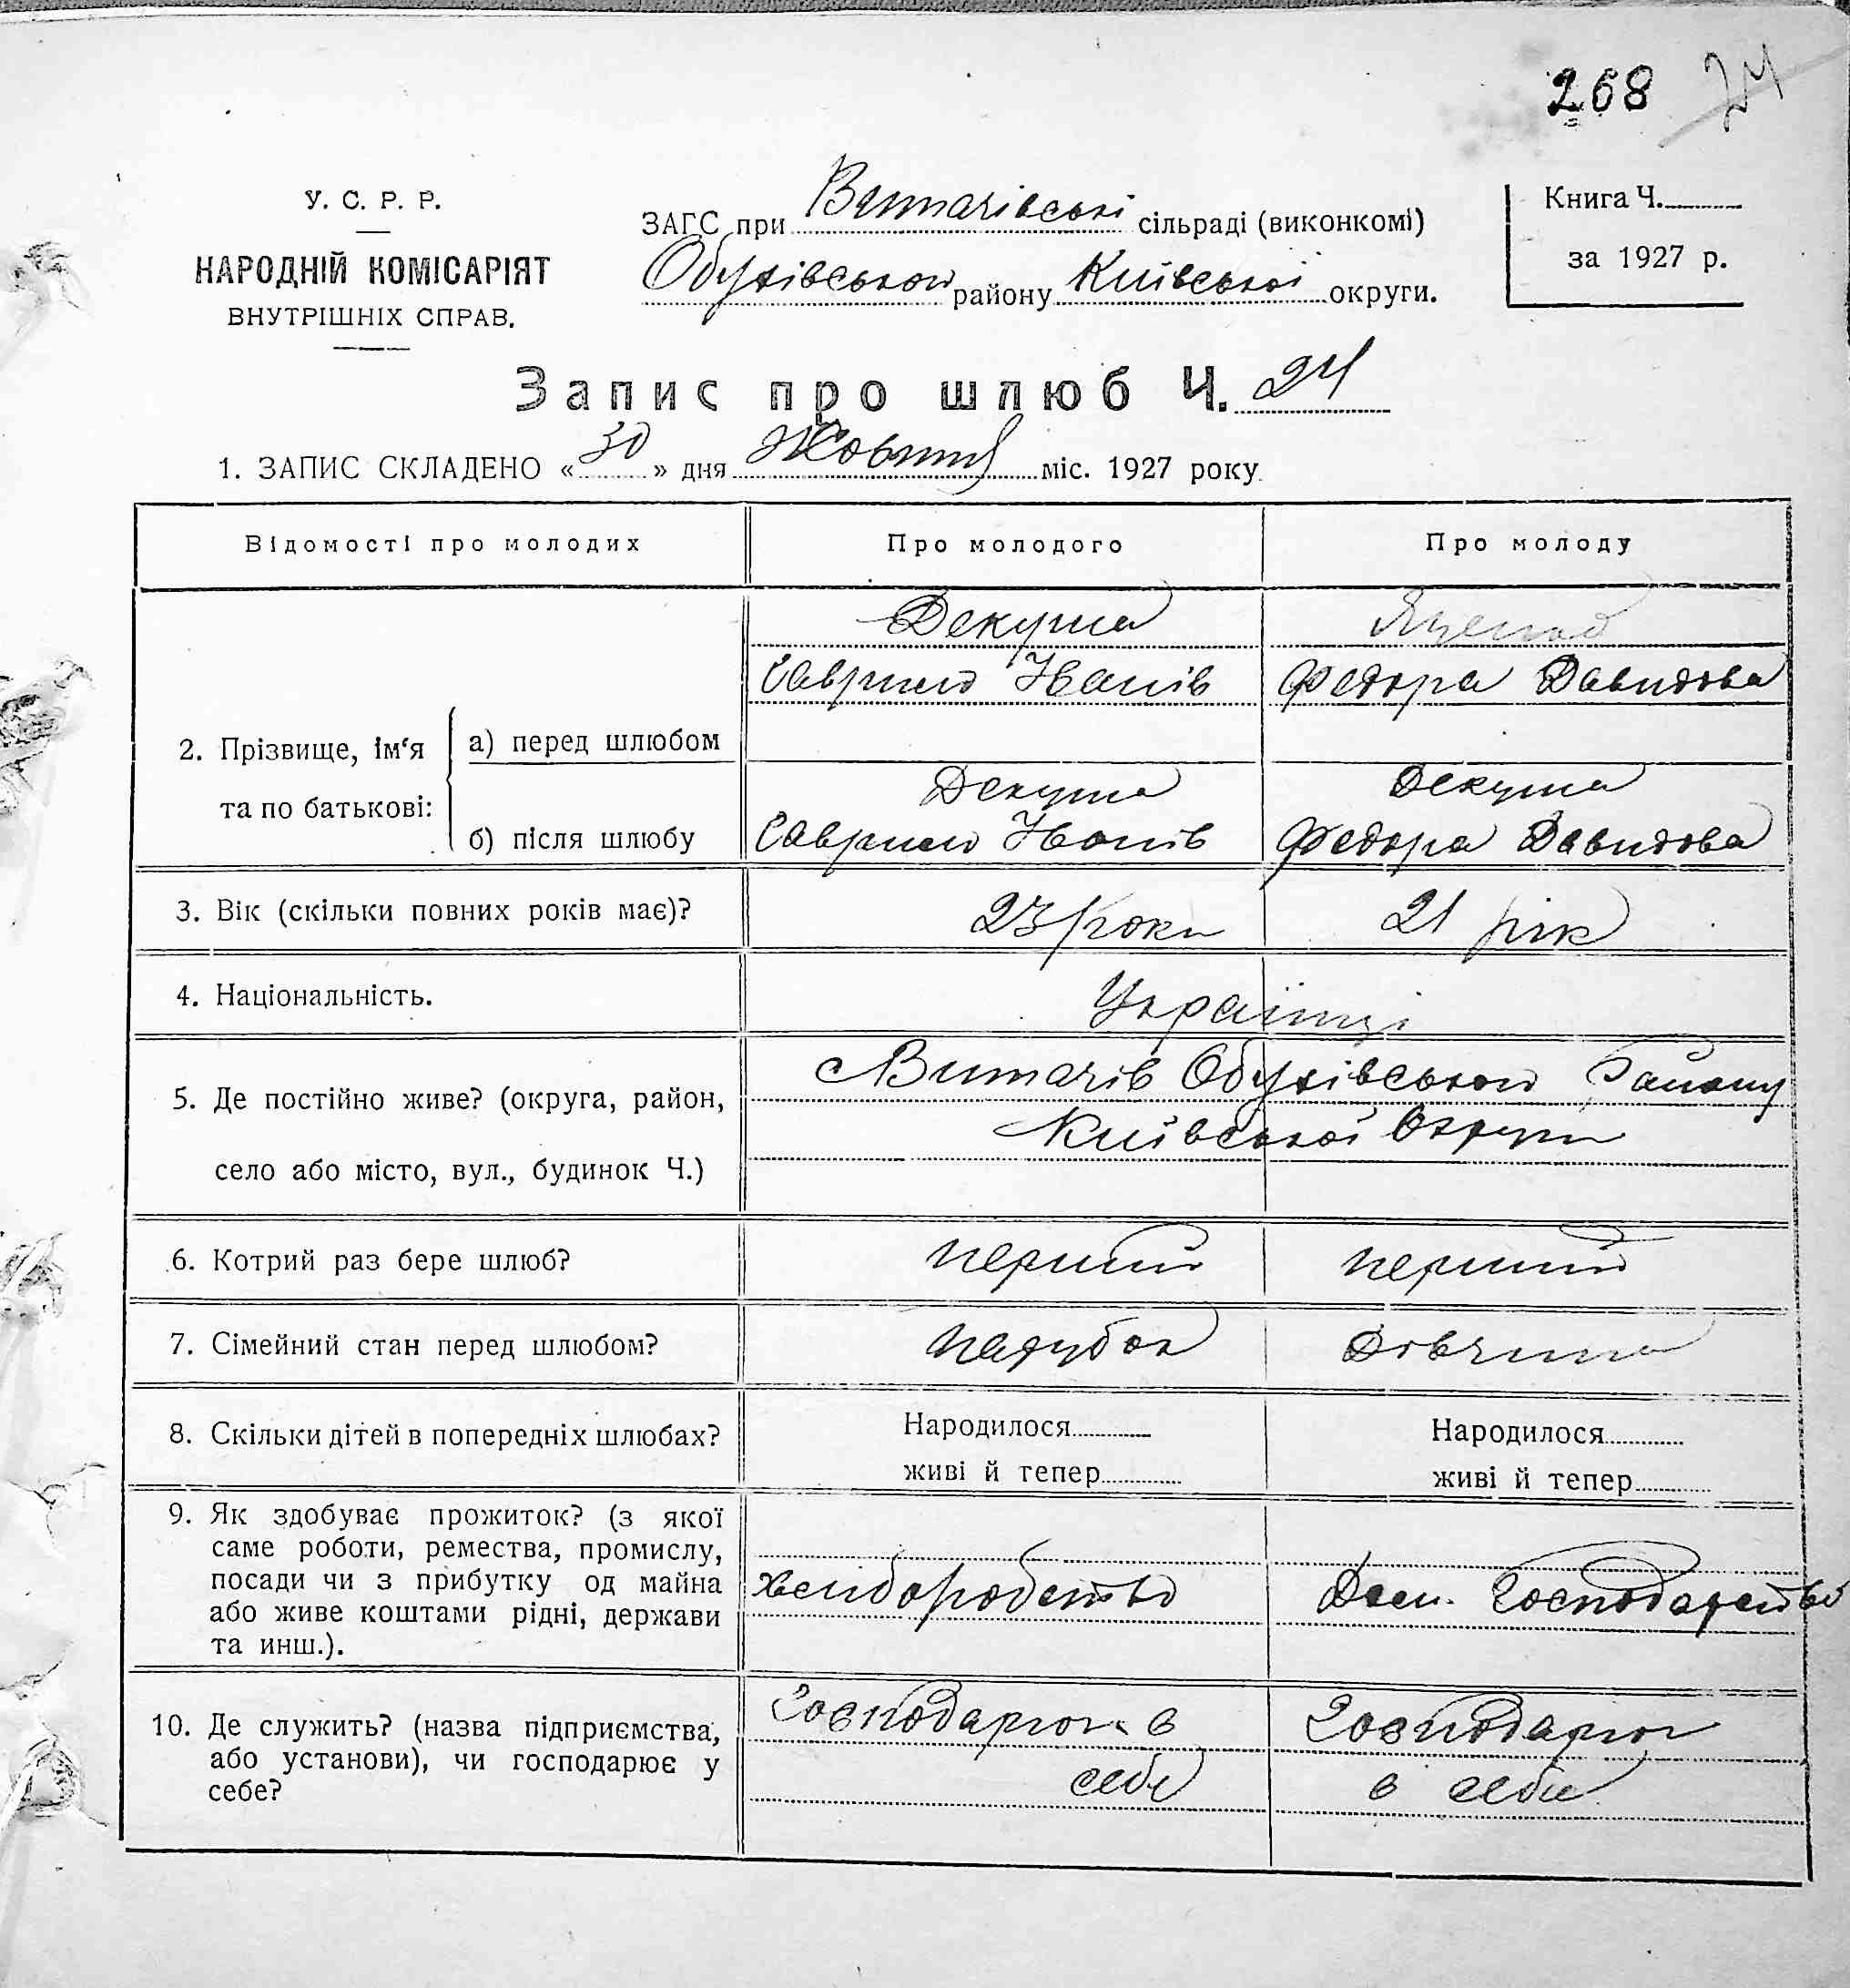 268 24
У. С. Р. Р.
НАРОДНІЙ КОМІСАРІЯТ
ВНУТРІШНІХ СПРАВ.
ЗАГС при Витачівські сільраді (виконкомі)
Обухівського району Київської округи.
Книга Ч.
за 1927 р.
Запис про шлюб Ч. 24
1. ЗАПИС СКЛАДЕНО «30» дня Жовтня міс. 1927 року.
Відомості про молодих
Про молодого
Про молоду
2. Прізвище, ім'я та по батькові:
а) перед шлюбом
Декуша
Гаврило Іванів
Федора Давидова
б) після шлюбу
Декуша
Гаврило Іванів
Декуша
Федора Давидова
3. Вік (скільки повних років має)?
23 роки
21 рік
4. Національність.
Українці
5. Де постійно живе? (округа, район,
село або місто, вул., будинок Ч.)
Витачів Обухівського Району
Київської Округи
6. Котрий раз бере шлюб?
перший
перший
7. Сімейний стан перед шлюбом?
парубок
Дівчина
8. Скільки дітей в попередніх шлюбах?
Народилося
живі й тепер
Народилося
живі й тепер
9. Як здобуває прожиток? (з якої
саме роботи, ремества, промислу,
посади чи з прибутку од майна
або живе коштами рідні, держави
та инш.).
хліборобство
Дом. Господарство
10. Де служить? (назва підприємства,
або установи), чи господарює у
себе?
Господарює в
себе
Господарює
в себе